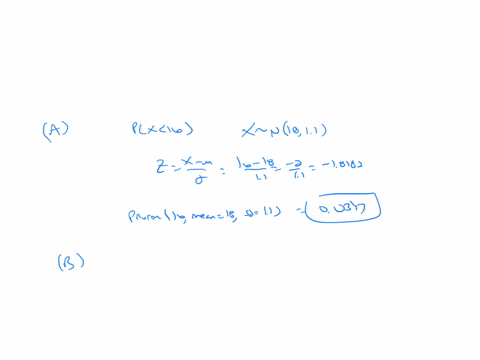 (A) P(X<16) X~N(18,1.1)
Z = (x-μ)/σ = (16-18)/1.1 = -2/1.1 = -1.8182
Pnorm(16, mean=18, =1.1) =
(B)